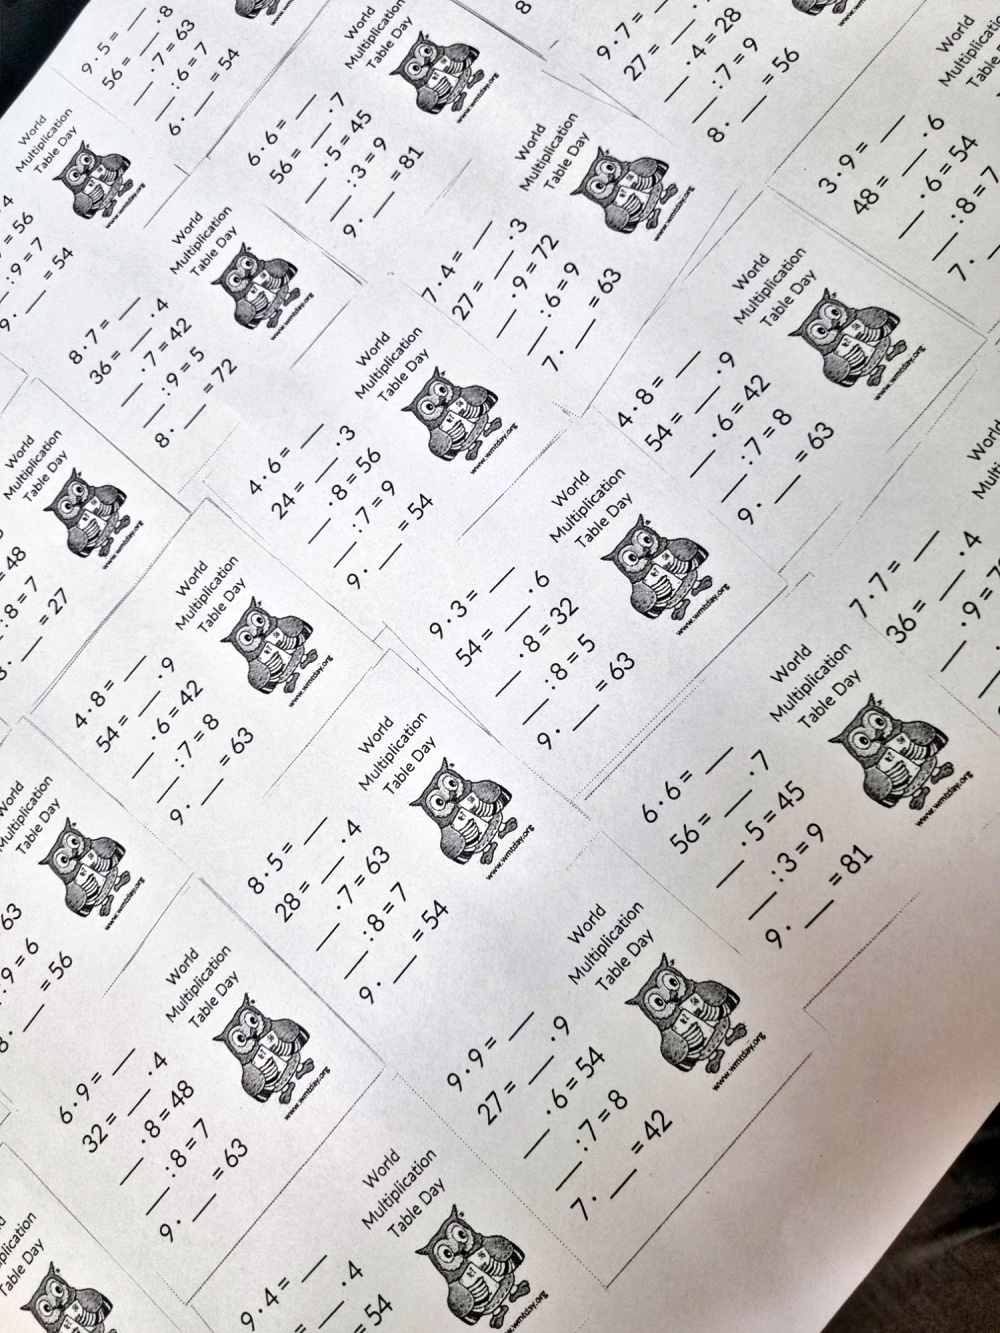 9 · 5 = ___
56 = ___ · 8
___ · 7 = 63
___ : 6 = 7
6 · ___ = 54
World
Multiplication
Table Day
www.wmtday.org
6 · 6 = ___
56 = ___ · 7
___ · 5 = 45
___ : 3 = 9
9 · ___ = 81
World
Multiplication
Table Day
www.wmtday.org
9 · 7 = ___
27 = ___
___ · 4 = 28
___ : 7 = 9
8 · ___ = 56
World
Multiplication
Table Day
3 · 9 = ___
48 = ___ · 6
___ · 6 = 54
___ : 8 = 7
7 ·
World
Multiplication
Table Day
www.wmtday.org
· 4
= 56
: 9 = 7
9 · ___ = 54
World
Multiplication
Table Day
www.wmtday.org
8 · 7 = ___
36 = ___ · 4
___ · 7 = 42
___ : 9 = 5
8 · ___ = 72
World
Multiplication
Table Day
www.wmtday.org
7 · 4 = ___
27 = ___ · 3
___ · 9 = 72
___ : 6 = 9
7 · ___ = 63
World
Multiplication
Table Day
www.wmtday.org
4 · 6 = ___
24 = ___ · 3
___ · 8 = 56
___ : 7 = 9
9 · ___ = 54
World
Multiplication
Table Day
www.wmtday.org
4 · 8 = ___
54 = ___ · 9
___ · 6 = 42
___ : 7 = 8
9 · ___ = 63
World
Multiplication
Table Day
www.wmtday.org
= 48
: 8 = 7
___ = 27
World
Multiplication
Table Day
www.wmtday.org
4 · 8 = ___
54 = ___ · 9
___ · 6 = 42
___ : 7 = 8
9 · ___ = 63
World
Multiplication
Table Day
www.wmtday.org
9 · 3 = ___
54 = ___ · 6
___ · 8 = 32
___ : 8 = 5
9 · ___ = 63
7 · 7 = ___
36 = ___ · 4
___ · 9 =
World
Multiplication
Table Day
www.wmtday.org
6 · 6 = ___
56 = ___ · 7
___ · 5 = 45
___ : 3 = 9
9 · ___ = 81
World
Multiplication
Table Day
www.wmtday.org
8 · 5 = ___
28 = ___ · 4
___ · 7 = 63
___ : 8 = 7
9 · ___ = 54
World
Multiplication
Table Day
www.wmtday.org
63
: 9 = 6
8 · ___ = 56
World
Multiplication
Table Day
www.wmtday.org
6 · 9 = ___
32 = ___ · 4
___ · 8 = 48
___ : 8 = 7
9 · ___ = 63
World
Multiplication
Table Day
www.wmtday.org
9 · 9 = ___
27 = ___ · 9
___ · 6 = 54
___ : 7 = 8
7 · ___ = 42
World
Multiplication
Table Day
www.wmtday.org
9 · 4 = ___
= ___ · 4
= 54
Table Day